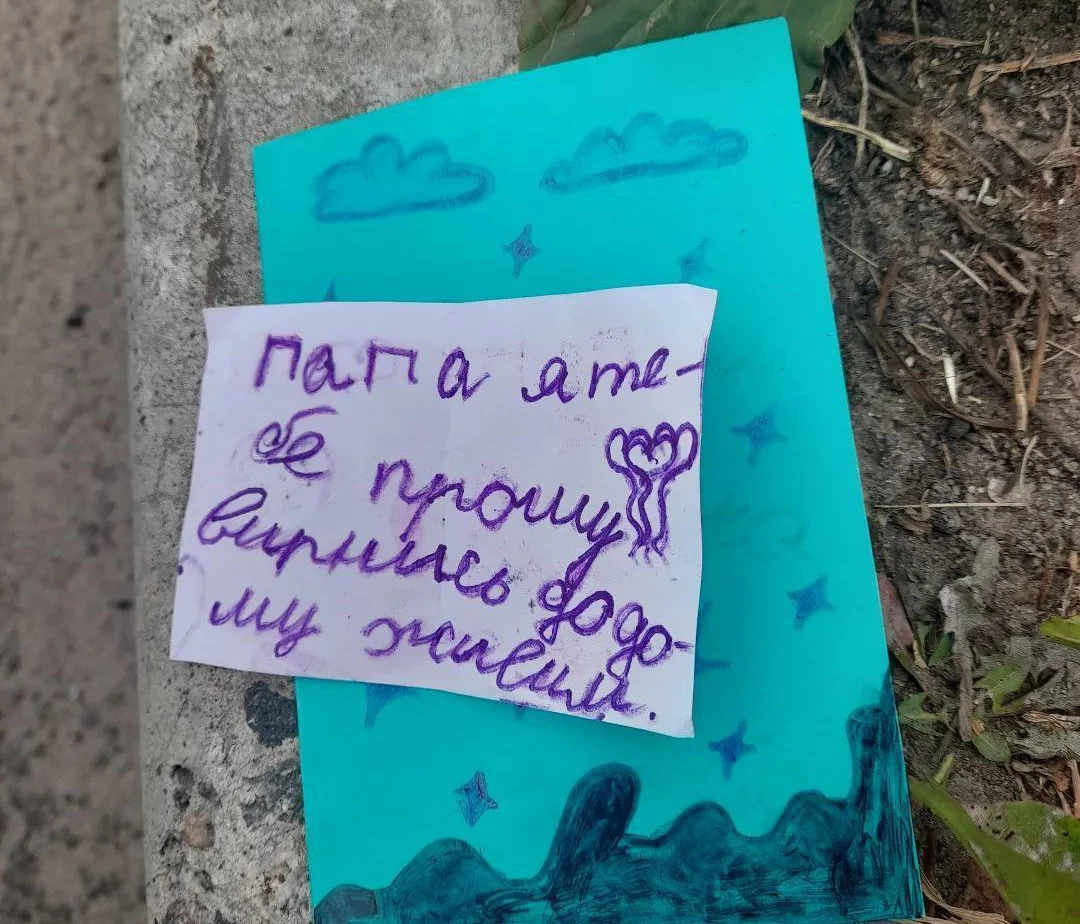 папа я те-
бе прошу
вирнись додо-
му живим.